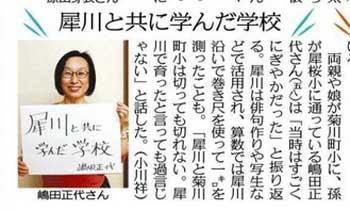 犀川と共に学んだ学校
両親や娘が菊川町小に、孫
が犀桜小に通っている嶋田正
代さん()は「当時はすごく
にぎやかだった」と振り返
る。犀川は俳句作りや写生な
どで活用され、算数では犀川
沿いで巻き尺を使って一㌔を
測ったことも。「犀川と菊川
町小は切っても切れない。犀
川で育ったと言っても過言じ
ゃない」と話した。(小川祥)
犀川と共に
学んだ学校
嶋田正代
嶋田正代さん